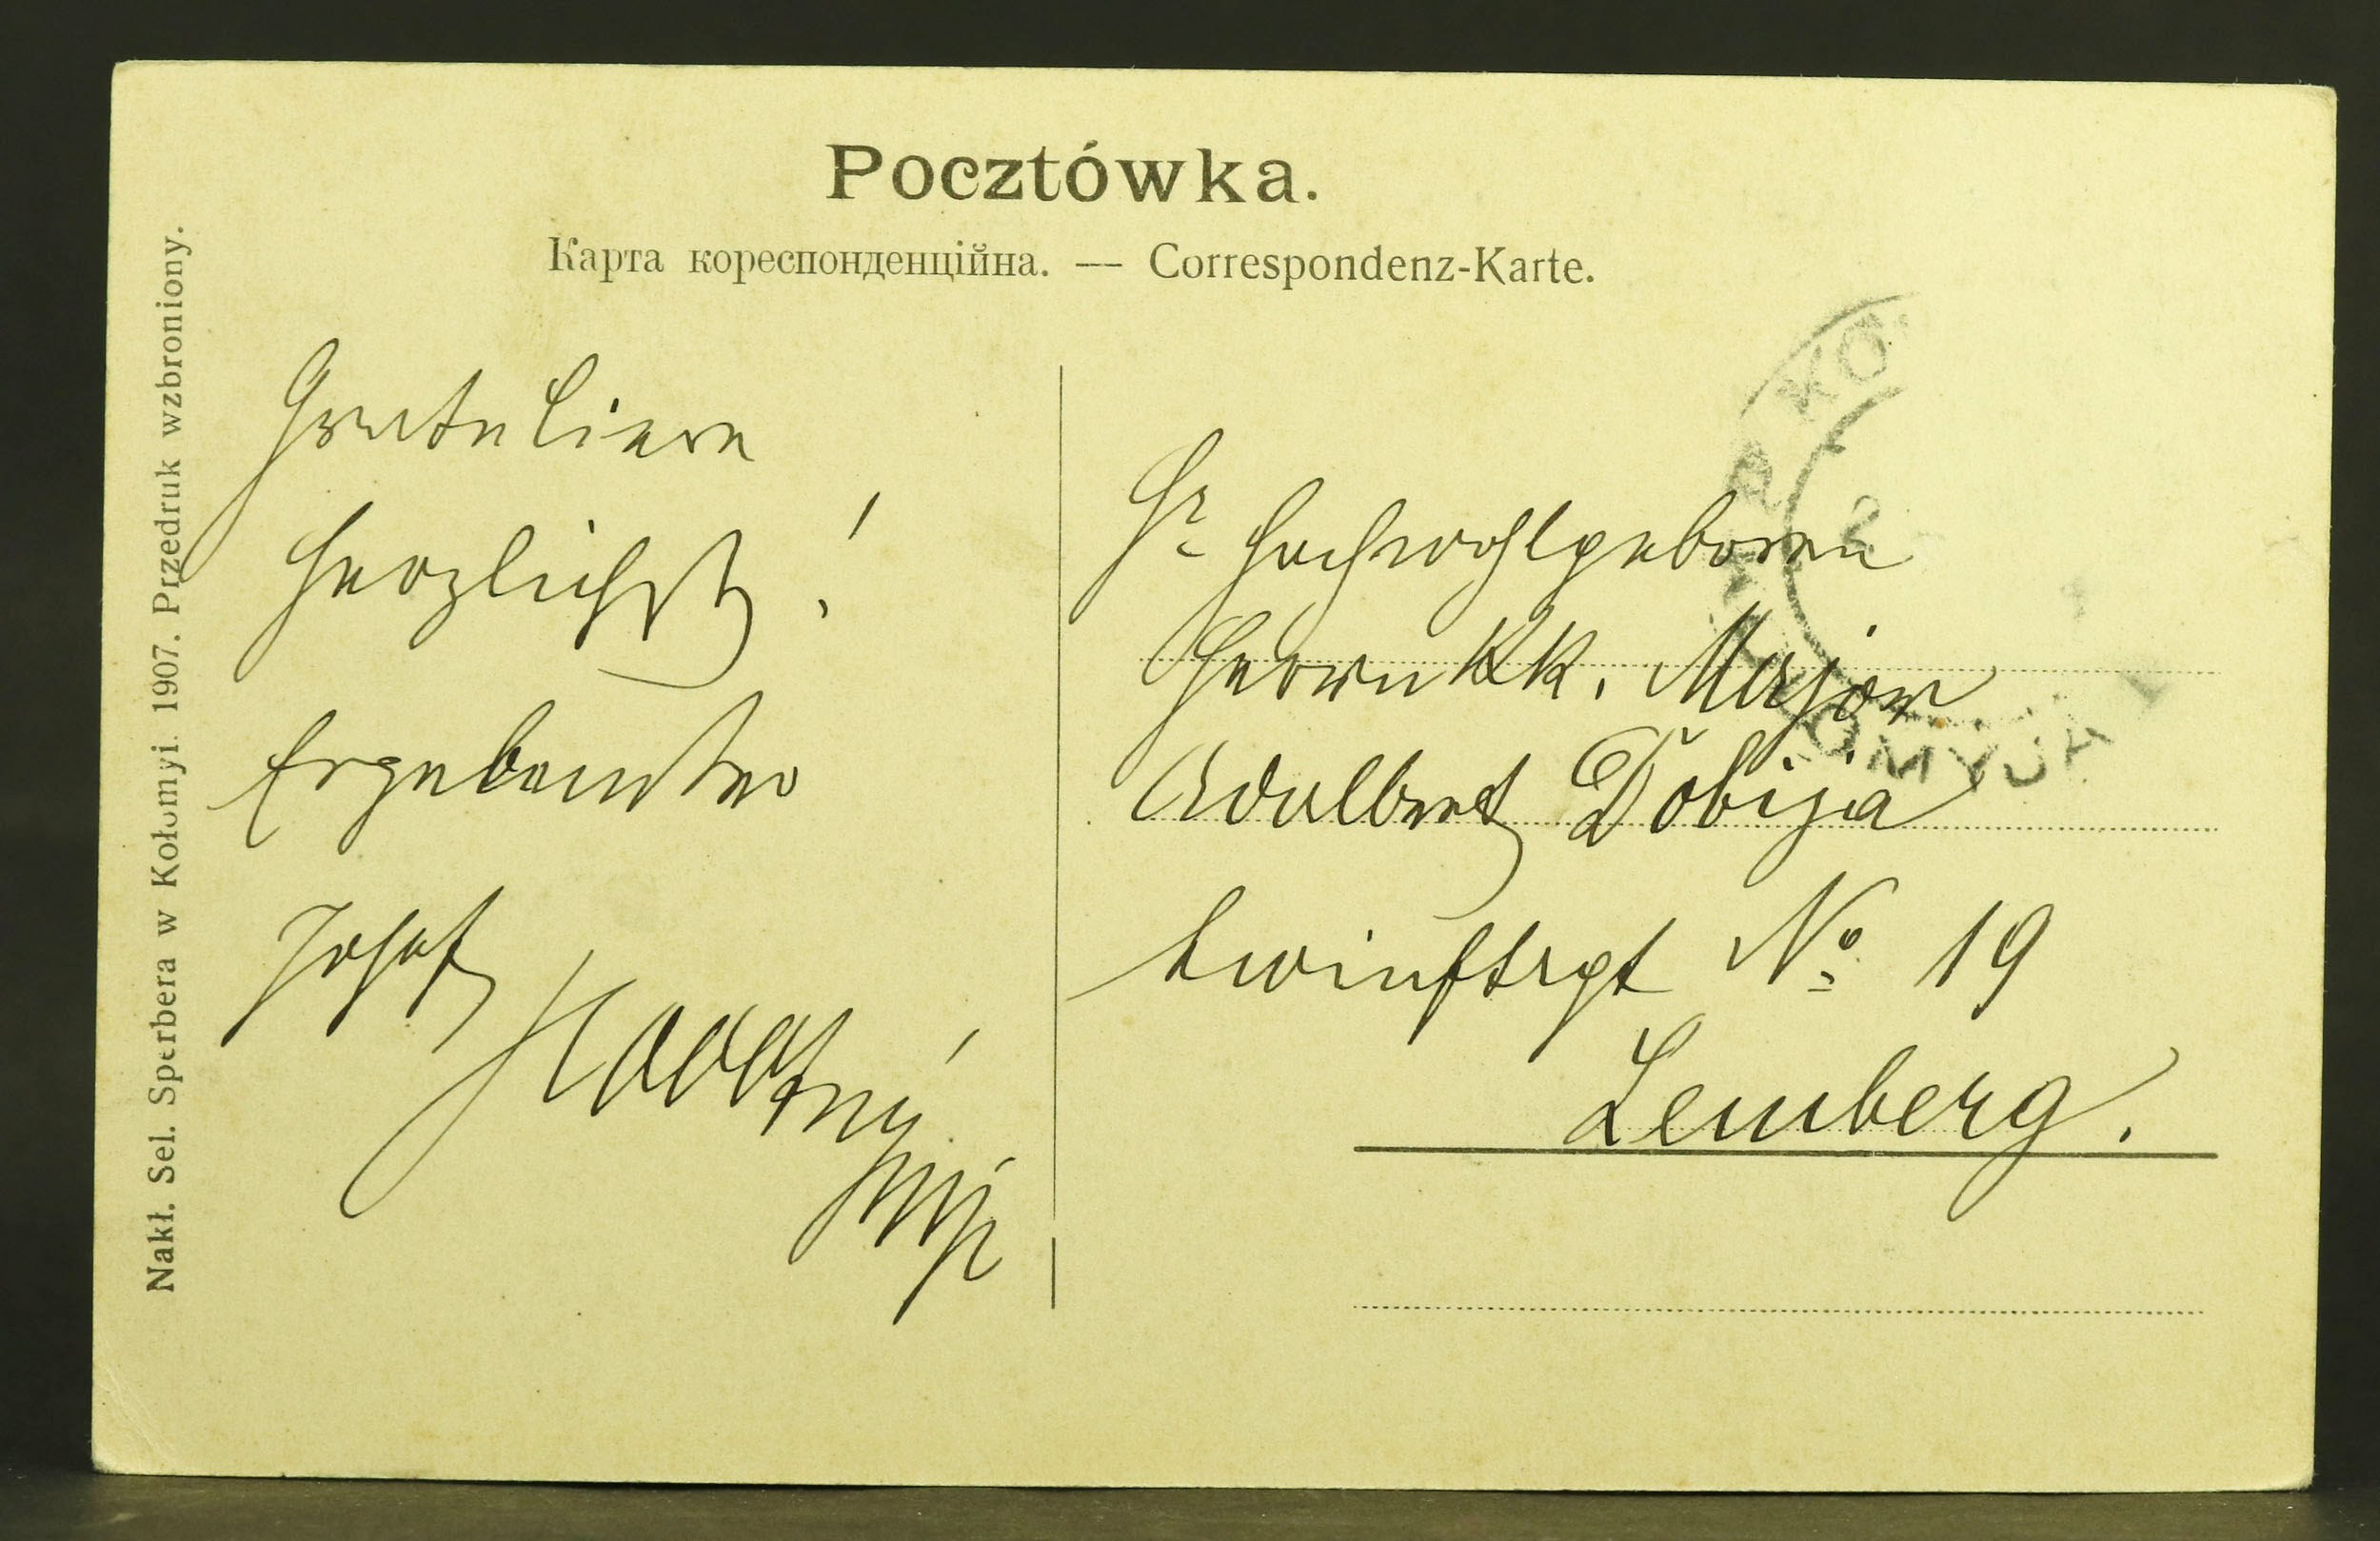 Pocztówka.
Карта кореспонденційна. — Correspondenz-Karte.
Nakł. Sel. Sperbera w Kołomyi. 1907. Przedruk wzbroniony.
Gratuliere
herzlichst!
Ergebenster
Josef
Sr Hochwohlgeboren
Herrn KK. Major
Adalbert Dobija
Lwinftrgt No 19
Lemberg.
KO
OMYJA